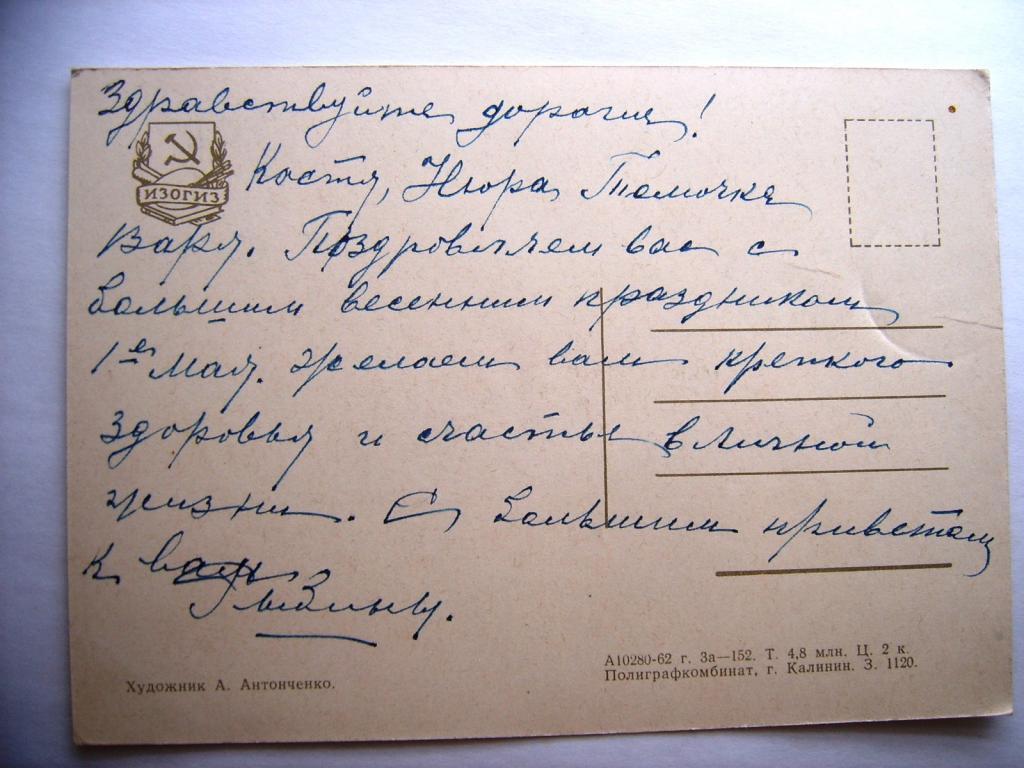 Здравствуйте дорогие!
ИЗОГИЗ
Костя, Нюра, Томочка
Варя. Поздровляем вас с
большим весенним праздником
1е Мая. желаем вам крепкого
здоровья и счастье в личной
жизни. С большим приветом
к вам
А10280-62 г. За—152. Т. 4,8 млн. Ц. 2 к.
Полиграфкомбинат, г. Калинин. З. 1120.
Художник А. Антонченко.